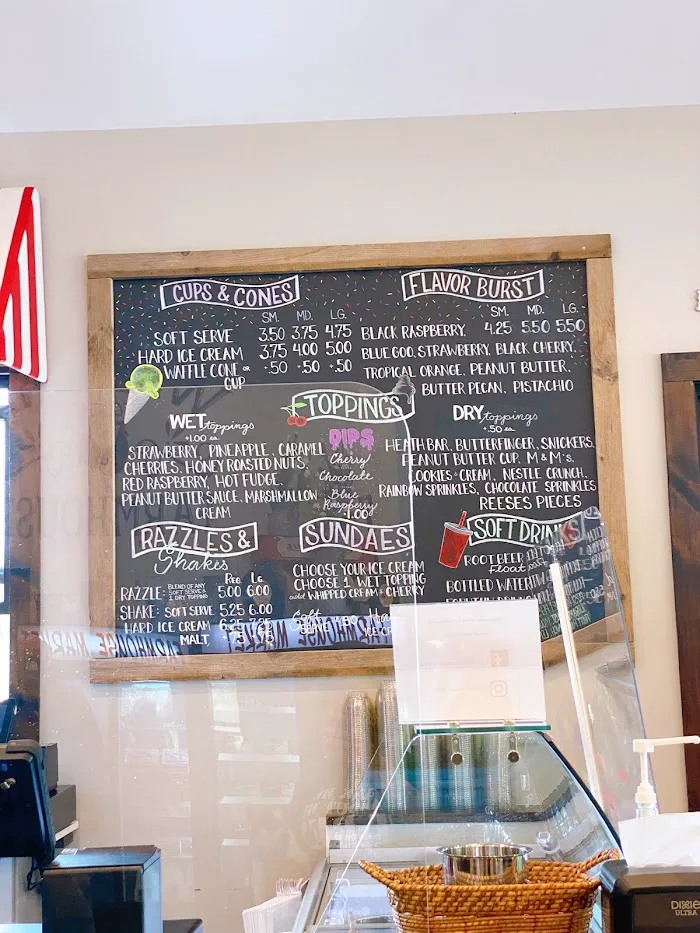 CUPS & CONES
SM. MD. LG.
SOFT SERVE 3.50 3.75 4.75
HARD ICE CREAM 3.75 4.00 5.00
WAFFLE CONE OR CUP +.50 +.50 +.50
FLAVOR BURST
SM. MD. LG.
BLACK RASPBERRY, 4.25 5.50 5.50
BLUE GOO, STRAWBERRY, BLACK CHERRY,
TROPICAL ORANGE, PEANUT BUTTER,
BUTTER PECAN, PISTACHIO
TOPPINGS
WET toppings
+1.00 ea.
STRAWBERRY, PINEAPPLE, CARAMEL
CHERRIES, HONEY ROASTED NUTS,
RED RASPBERRY, HOT FUDGE,
PEANUT BUTTER SAUCE, MARSHMALLOW
CREAM
DIPS
Cherry
Chocolate
Blue
Raspberry
1.00
DRY toppings
+.50 ea.
HEATH BAR, BUTTERFINGER, SNICKERS,
PEANUT BUTTER CUP, M & M's,
COOKIES & CREAM, NESTLE CRUNCH,
RAINBOW SPRINKLES, CHOCOLATE SPRINKLES
REESES PIECES
RAZZLES &
Shakes
REG. LG.
RAZZLE: BLEND OF ANY SOFT SERVE & 1 DRY TOPPING 5.00 6.00
SHAKE: SOFT SERVE 5.25 6.00
HARD ICE CREAM 6.25 7.25
MALT
SUNDAES
CHOOSE YOUR ICE CREAM
CHOOSE 1 WET TOPPING
add WHIPPED CREAM & CHERRY
SOFT DRINKS
ROOT BEER
float
BOTTLED WATER
DIXIE
ULTRA